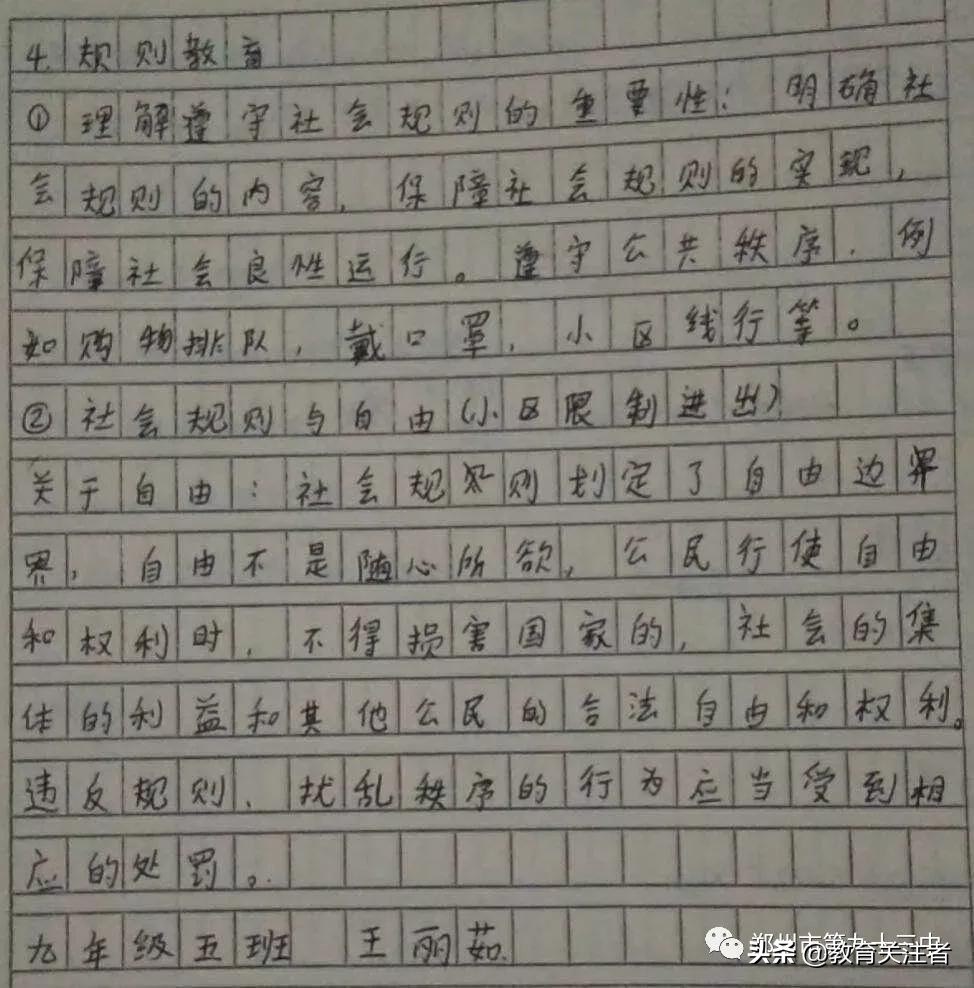 4.规则教育
①理解遵守社会规则的重要性：明确社
会规则的内容，保障社会规则的实现，
保障社会良性运行。遵守公共秩序．例
如购物排队，戴口罩，小区线行等。
②社会规则与自由（小区限制进出）
关于自由：社会规则划定了自由边界
界，自由不是随心所欲，公民行使自由
和权利时，不得损害国家的，社会的集
体的利益和其他公民的合法自由和权利。
违反规则、扰乱秩序的行为应当受到相
应的处罚。
九年级五班 王丽茹.
郑州市第九十三中
头条@教育关注者